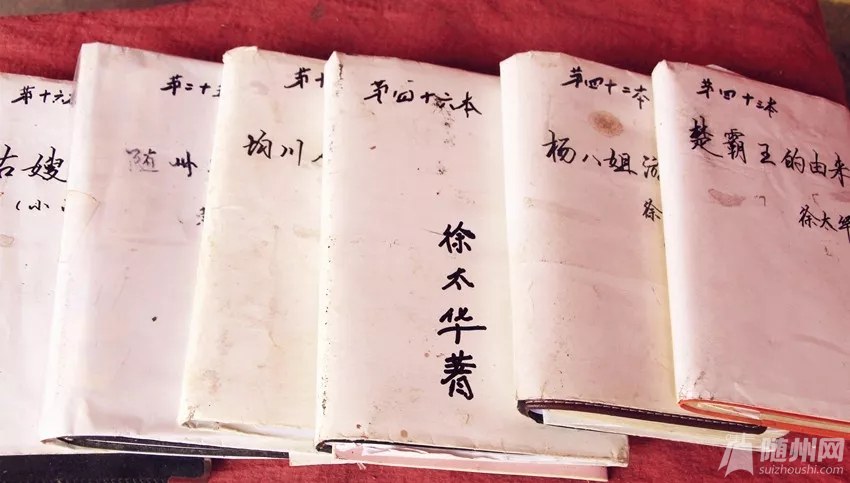 第十六
古嫂
(小
第二十五
随州
第十
均川
第四十六本
徐太华著
第四十二本
杨八姐流
徐
第四十三本
楚霸王的由来
徐太华
随州网
suizhoushi.com